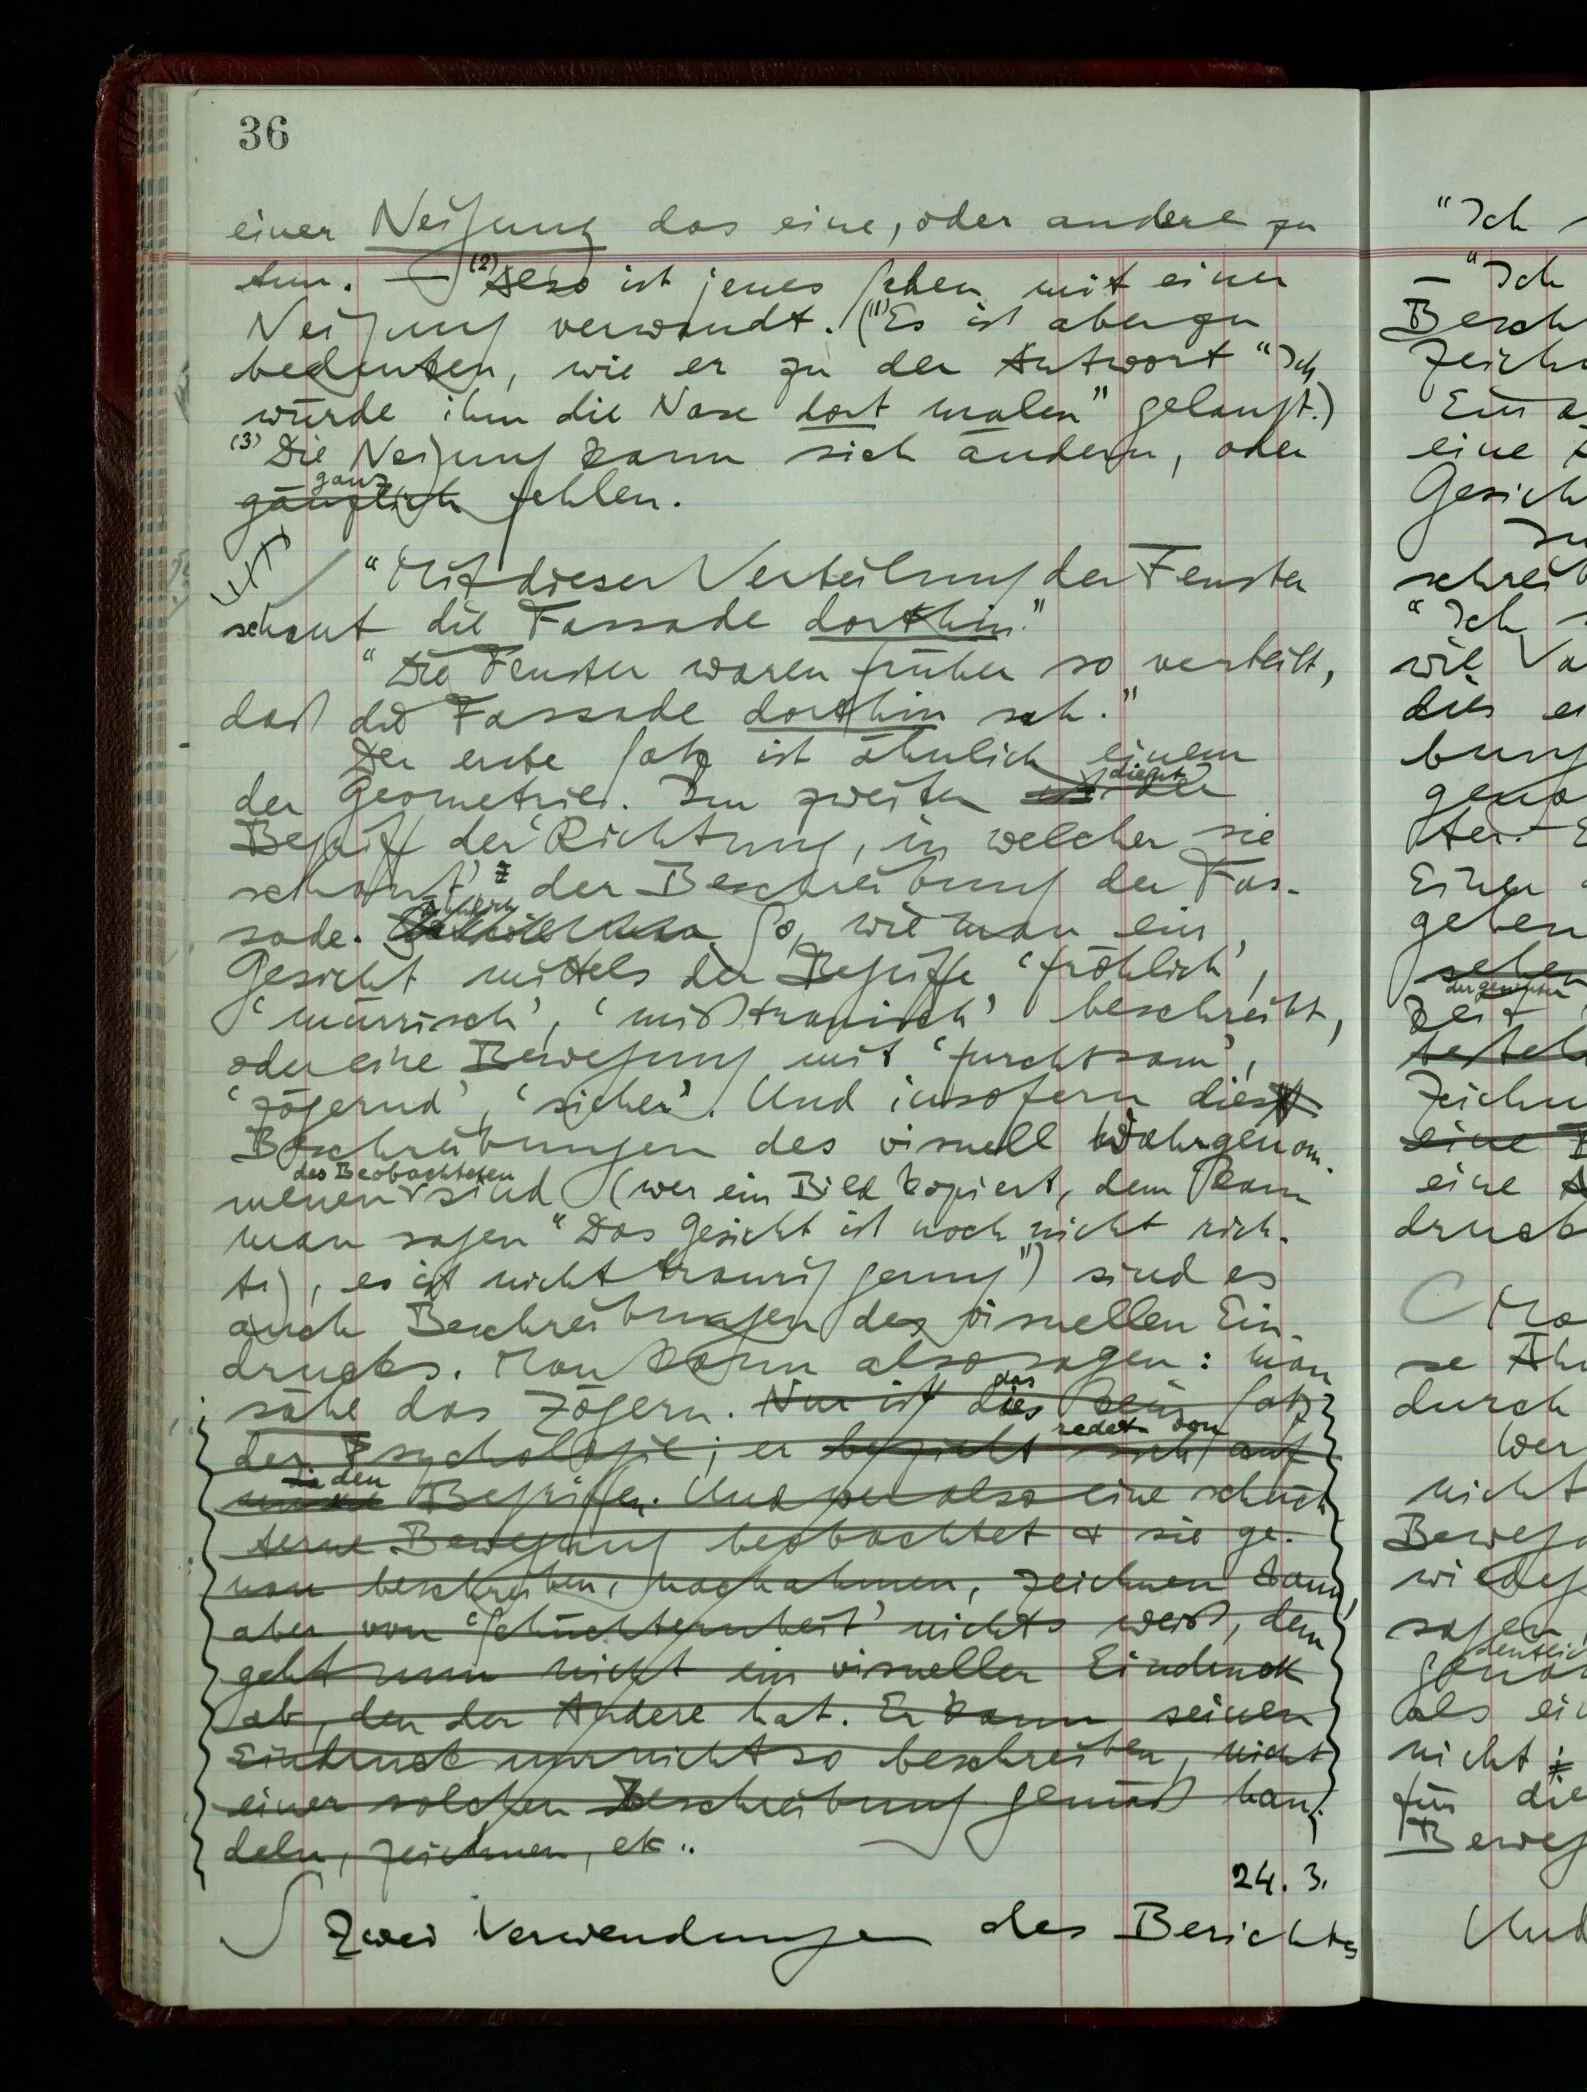 36
einer Neigung das eine, oder andere zu
tun. — (2) Also ist jenes Sehen mit einer
Neigung verwandt. ((1) Es ist aber zu
bedenken, wie er zu der Antwort “Ich
würde ihm die Nase dort malen” gelangt.)
(3) Die Neigung kann sich ändern, oder
ganz
gänzlich fehlen.
“Mit dieser Verteilung der Fenster
schaut die Fassade dorthin.”
“Die Fenster waren früher so verteilt,
daß die Fassade dorthin sah.”
Der erste Satz ist ähnlich einem
dient
der Geometrie. Im zweiten der
Begriff der ‘Richtung, in welcher sie
schaut’ z der Beschreibung der Fas-
sade. So, wie man ein
Gesicht mittels der Begriffe ‘fröhlich’,
‘mürrisch’, ‘mißtrauisch’ beschreibt,
oder eine Bewegung mit ‘furchtsam’,
‘zögernd’, ‘sicher’. Und insofern dies
Beschreibungen des visuell Wahrgenom-
des Beobachteten
menen sind (wer ein Bild kopiert, dem kann
man sagen “Das Gesicht ist noch nicht rich-
tig, es ist nicht traurig genug”) sind es
auch Beschreibungen des visuellen Ein-
drucks. Man kann also sagen: man
das
sähe das Zögern. Nur ist dies kein Satz
redet von
der Psychologie; er bezieht sich auf
den
Begriffen. Und wer also eine schüch
terne Bewegung beobachtet & sie ge-
nau beschreiben, nachahmen, zeichnen kann,
aber von ‘Schüchternheit’ nichts weiß, dem
geht nun nicht ein visueller Eindruck
ab, den der Andere hat. Er kann seinen
Eindruck nur nicht so beschreiben, nicht
einer solchen Beschreibung gemäß han-
deln, zeichnen, etc..
24. 3.
Zwei Verwendungen des Berichts
“Ich
– “Ich
Besch
zeichn
eine
Gesich
schrei
“Ich
wie
dies
geben
sehen
Zeit
Zeichn
eine
eine
druck
durch
Wer
nicht
Beweg
sagen
als ein
nicht
für die
Beweg
Und